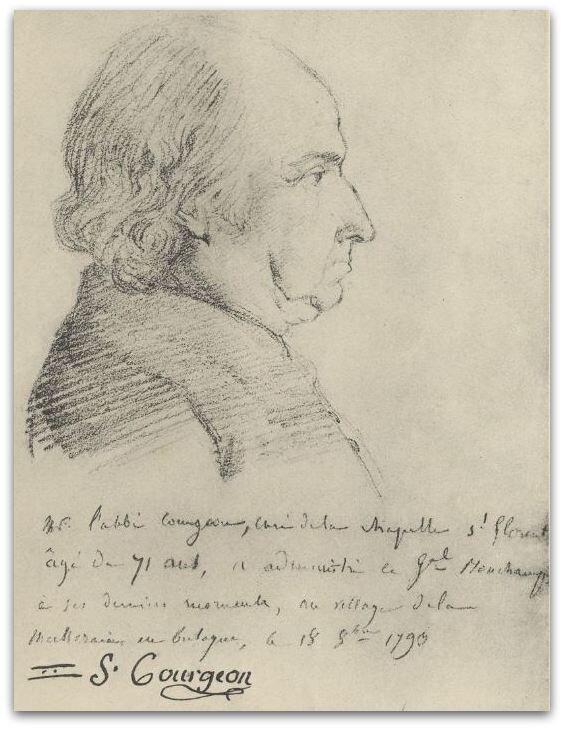 Mr. l'abbé Courgeon, curé de la chapelle St florent
âgé de 71 ans, a administré le Gal Bonchamp
à ses derniers moments, au village de la
en bretagne, le 18 8bre 1793
S. Courgeon